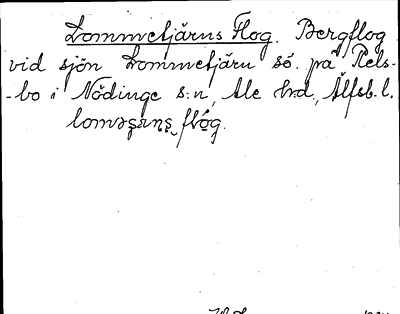 Lommetjärns Flog. Bergflog
vid sjön Lommetjärn sö. på Rels-
-bo i Nödinge s:n, Ale hrd., Älfsb. l.